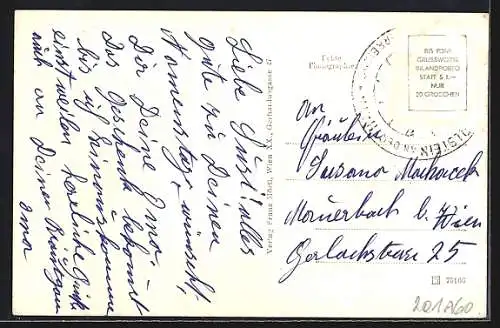 Liebe Susi! alles
gute zu Deinen
Namenstag wünscht
Dir Deine Oma.
Das Geschenk bekommst
bis ich hinauskomme
einstweilen herzliche Grüße
auch an Deinen
Oma
Verlag Franz Mörtl, Wien XX., Gerhardusgasse 27
Echte
Photographie
BIS FÜNF
GRUSSWORTE
INLANDPORTO
STATT S 1.—
NUR
30 GROSCHEN
An
Fräulein
Susana Machacek
Mauerbach b. Wien
Gerlachstrasse 25
75106
201860